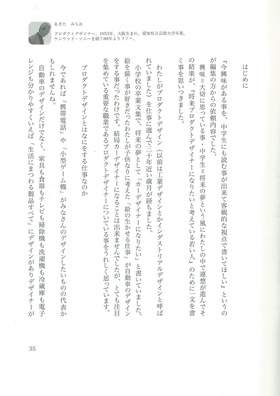 あきた みちお
プロダクトデザイナー。1953年、大阪生まれ。愛知県立芸術大学卒業。
ケンウッド・ソニーを経て88年よりフリー。
はじめに
「今興味がある事を、中学生にも読む事が出来て客観的な視点で書いてほしい」というの
が編集の方からの依頼内容でした。
興味＝大切に思っている事・中学生＝将来の夢という風にわたしの中で連想が進んでそ
の結果が、「将来プロダクトデザイナーになりたいと考えている若い人」のために一文を書
く事です。
わたしがプロダクトデザイン（以前は工業デザインとかインダストリアルデザインと呼ば
れていました）を仕事に選んで三十年近い歳月が経ちました。
小学校の卒業文集で、将来の夢として「カーデザイナーになりたい」と書いていました。
絵を描く事が好きだったわたしが子供なりに考えた「絵の生かせる仕事」が自動車のデザイン
をする事だったわけです。結局カーデザイナーになることは出来ませんでしたが、とても注目
を集めている重要な職業であるプロダクトデザイナーについている事をうれしく思っています。
プロダクトデザインとはなにをする仕事なのか
今であれば、「携帯電話」や「小型ゲーム機」がみなさんのデザインしたいものの代表か
もしれませんね。
自動車のデザインだけでなく、家具も食器もテレビも掃除機も洗濯機も冷蔵庫も電子
レンジも分かりやすくいえば「生活にまつわる製品すべて」にデザインがありデザイナーが
35